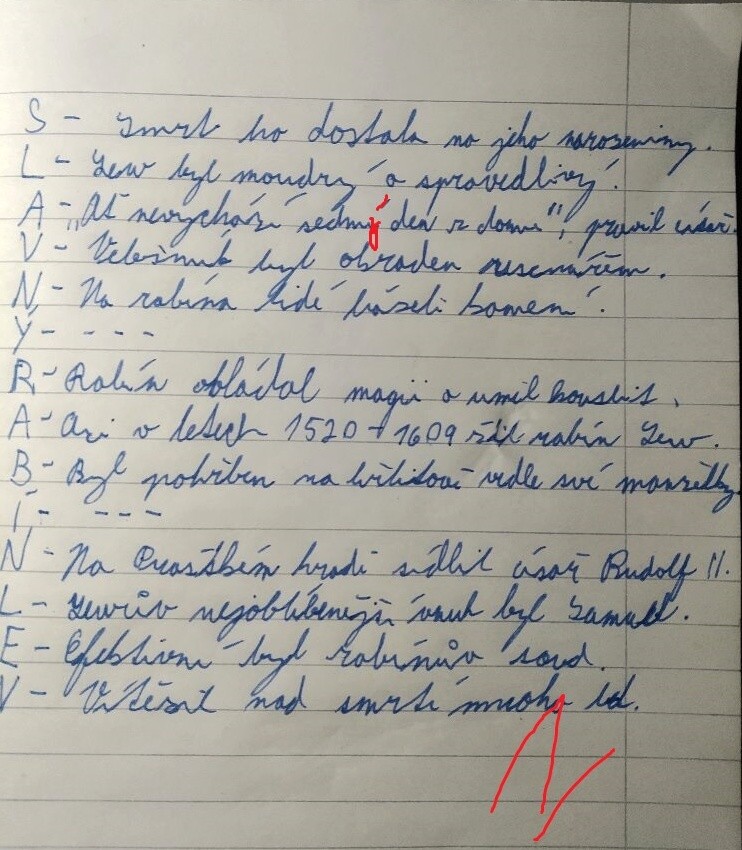 S - Smrt ho dostala na jeho narozeniny.
L - Lew byl moudrý a spravedlivý.
A - „Ať nevychází sedmý den z domu", pravil císař.
V - Velešnuk byl obraden
N - Na rabína lidé házeli kamení.
Ý - - - - -
R - Rabín obládal magii a uměl kouslit.
A - Asi v letech 1520 - 1609 žil rabín Lew.
B - Byl pohřben na hřbitově vedle své manželky
Í - - - -
N - Na Pražském hradě sídlil císař Rudolf II.
L - Lewův nejoblíbenější vnuk byl Samuel.
E - Efektivní byl rabínův soud.
V - Vítězil nad smrtí mnoho let.